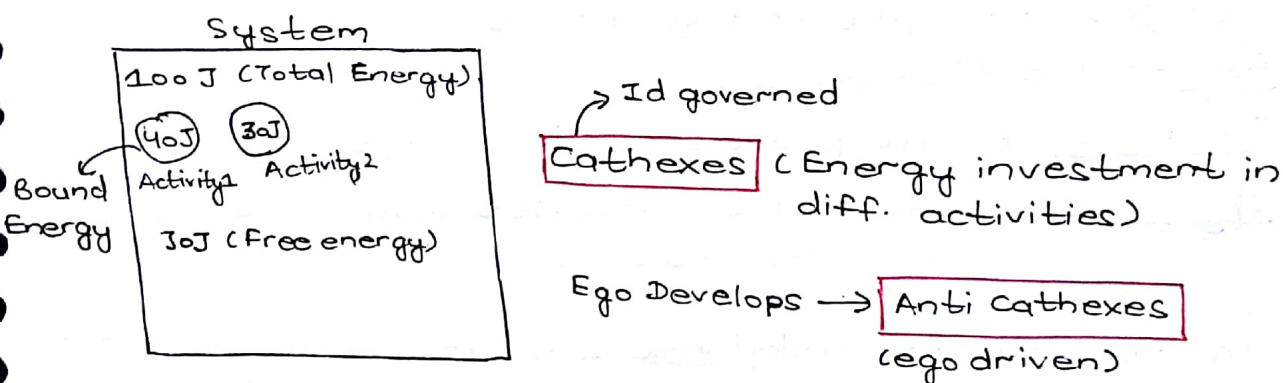 System
100 J (Total Energy)
40J 30J
Activity1 Activity2
Bound
Energy
30J (Free energy)
Id governed
Cathexes (Energy investment in
diff. activities)
Ego Develops → Anti Cathexes
(ego driven)